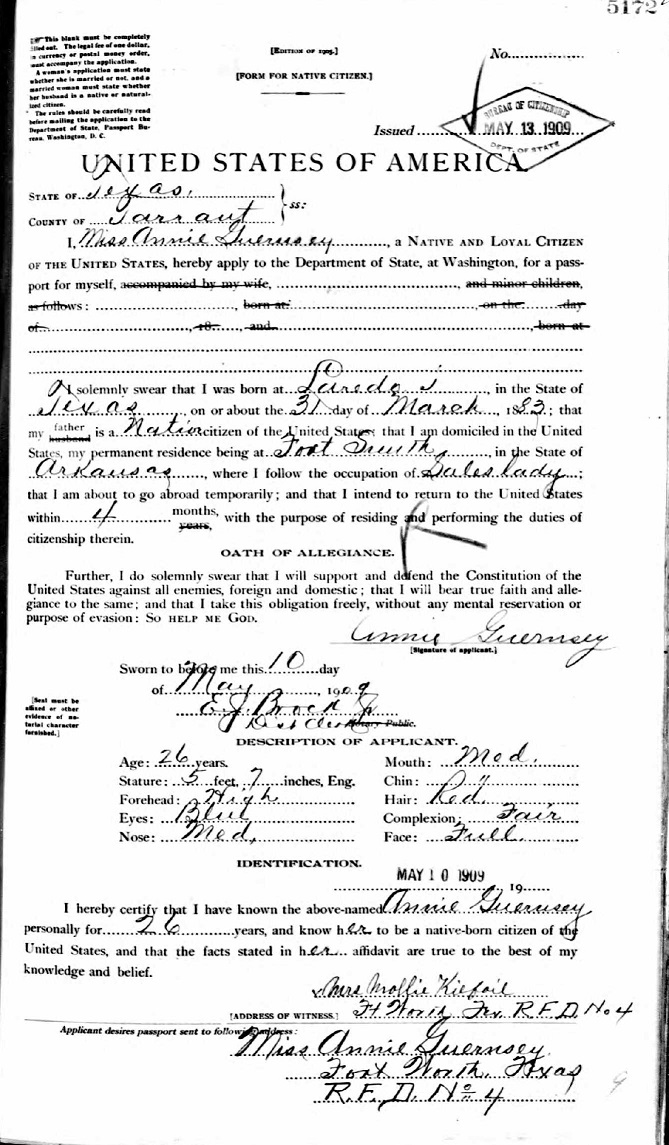 5172
This blank must be completely
filled out. The legal fee of one dollar,
in currency or postal money order,
must accompany the application.
A woman's application must state
whether she is married or not, and a
married woman must state whether
her husband is a native or natural-
ized citizen.
The rules should be carefully read
before mailing the application to the
Department of State, Passport Bu-
reau, Washington, D. C.
[EDITION OF 1905.]
[FORM FOR NATIVE CITIZEN.]
No.
Issued
BUREAU OF CITIZENSHIP
MAY 13 1909
DEPT. OF STATE
UNITED STATES OF AMERICA.
STATE OF Texas.
COUNTY OF Tarrant
ss:
I, Miss Annie Guernsey, a NATIVE AND LOYAL CITIZEN
OF THE UNITED STATES, hereby apply to the Department of State, at Washington, for a pass-
port for myself, accompanied by my wife, and minor children,
as follows: born at on the day
of 18 and born at
I solemnly swear that I was born at Laredo, in the State of
Texas, on or about the 31 day of March, 1883; that
my father husband is a Native citizen of the United States; that I am domiciled in the United
States, my permanent residence being at Fort Smith, in the State of
Arkansas, where I follow the occupation of Saleslady;
that I am about to go abroad temporarily; and that I intend to return to the United States
within 4 months, years, with the purpose of residing and performing the duties of
citizenship therein.
OATH OF ALLEGIANCE.
Further, I do solemnly swear that I will support and defend the Constitution of the
United States against all enemies, foreign and domestic; that I will bear true faith and alle-
giance to the same; and that I take this obligation freely, without any mental reservation or
purpose of evasion: SO HELP ME GOD.
Annie Guernsey
[Signature of applicant.]
Sworn to before me this 10 day
of May, 1909
E. J. Brock Jr
Dist Clerk Notary Public.
[Seal must be
affixed or other
evidence of no-
tarial character
furnished.]
DESCRIPTION OF APPLICANT.
Age: 26 years. Mouth: Med.
Stature: 5 feet, 7 inches, Eng. Chin: "
Forehead: High Hair: Red.
Eyes: Blue Complexion: Fair
Nose: Med. Face: Full.
IDENTIFICATION.
MAY 10 1909
19
I hereby certify that I have known the above-named Annie Guernsey
personally for 26 years, and know her to be a native-born citizen of the
United States, and that the facts stated in her affidavit are true to the best of my
knowledge and belief.
Mrs Mollie Kiefoil
[ADDRESS OF WITNESS.] Ft Worth Tex R.F.D. No 4
Applicant desires passport sent to following address:
Miss Annie Guernsey
Fort Worth, Texas
R.F.D. No 4
9